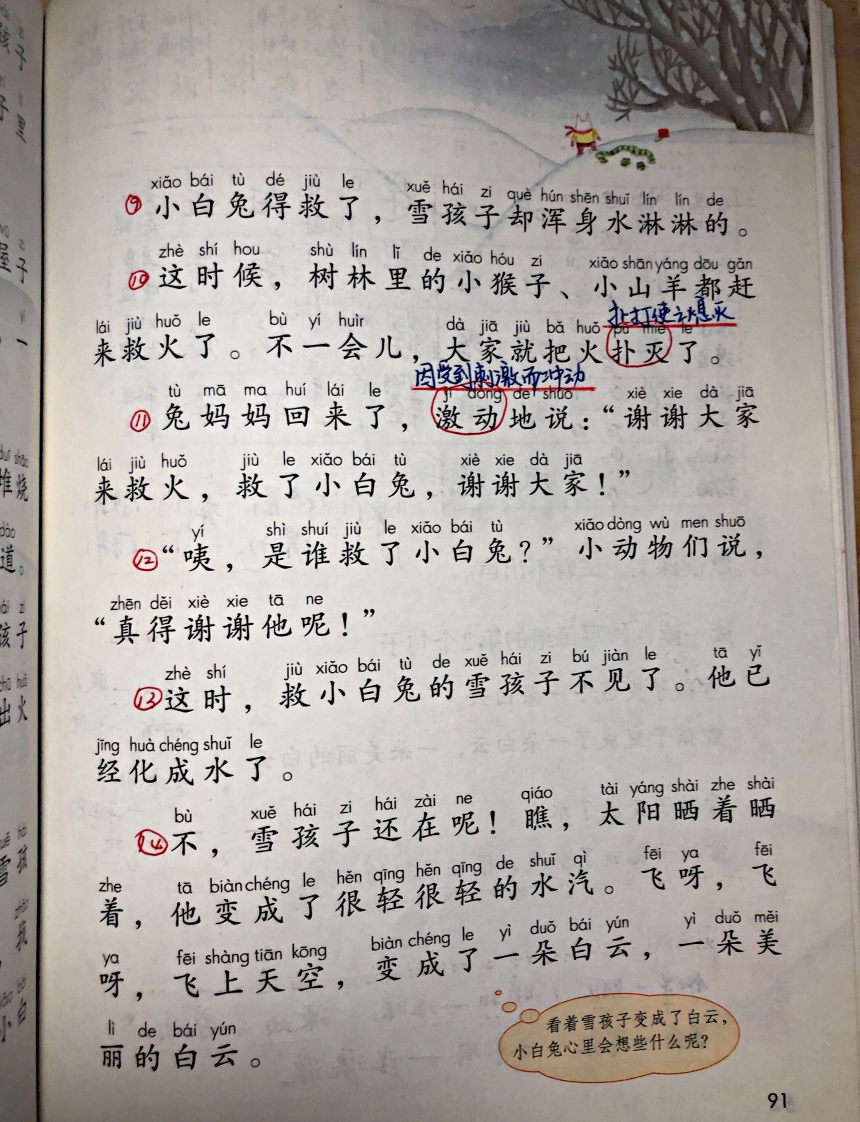 xiǎo bái tù dé jiù le xuě hái zi què hún shēn shuǐ lín lín de
⑨ 小白兔得救了，雪孩子却浑身水淋淋的。
zhè shí hou shù lín lǐ de xiǎo hóu zi xiǎo shān yáng dōu gǎn
⑩ 这时候，树林里的小猴子、小山羊都赶
扑打使之熄灭
lái jiù huǒ le bù yí huìr dà jiā jiù bǎ huǒ pū miè le
来救火了。不一会儿，大家就把火扑灭了。
因受到刺激而冲动
tù mā ma huí lái le jī dòng de shuō xiè xie dà jiā
⑪ 兔妈妈回来了，激动地说：“谢谢大家
lái jiù huǒ jiù le xiǎo bái tù xiè xie dà jiā
来救火，救了小白兔，谢谢大家！”
yí shì shuí jiù le xiǎo bái tù xiǎo dòng wù men shuō
⑫ “咦，是谁救了小白兔？”小动物们说，
zhēn děi xiè xie tā ne
“真得谢谢他呢！”
zhè shí jiù xiǎo bái tù de xuě hái zi bú jiàn le tā yǐ
⑬ 这时，救小白兔的雪孩子不见了。他已
jīng huà chéng shuǐ le
经化成水了。
bù xuě hái zi hái zài ne qiáo tài yáng shài zhe shài
⑭ 不，雪孩子还在呢！瞧，太阳晒着晒
zhe tā biàn chéng le hěn qīng hěn qīng de shuǐ qì fēi ya fēi
着，他变成了很轻很轻的水汽。飞呀，飞
ya fēi shàng tiān kōng biàn chéng le yì duǒ bái yún yì duǒ měi
呀，飞上天空，变成了一朵白云，一朵美
lì de bái yún
丽的白云。
看着雪孩子变成了白云，
小白兔心里会想些什么呢？
91